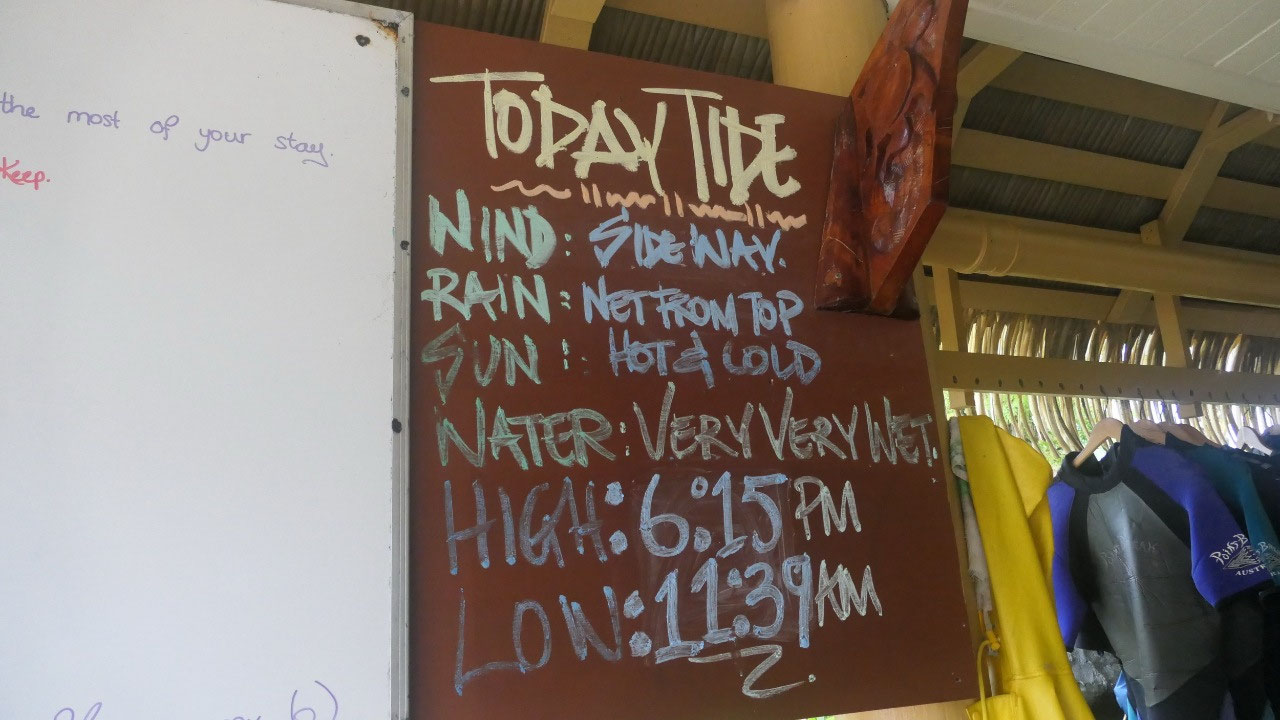 the most of your stay.
Keep.
TODAY TIDE
WIND: SIDE WAY.
RAIN: WET FROM TOP
SUN: HOT & COLD
WATER: VERY VERY WET.
HIGH: 6:15 PM
LOW: 11:39 AM